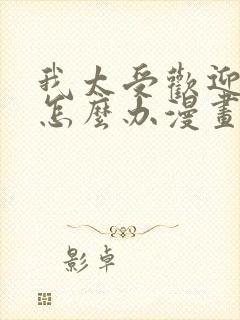 我太受歡迎
怎麼办漫畫
影卓